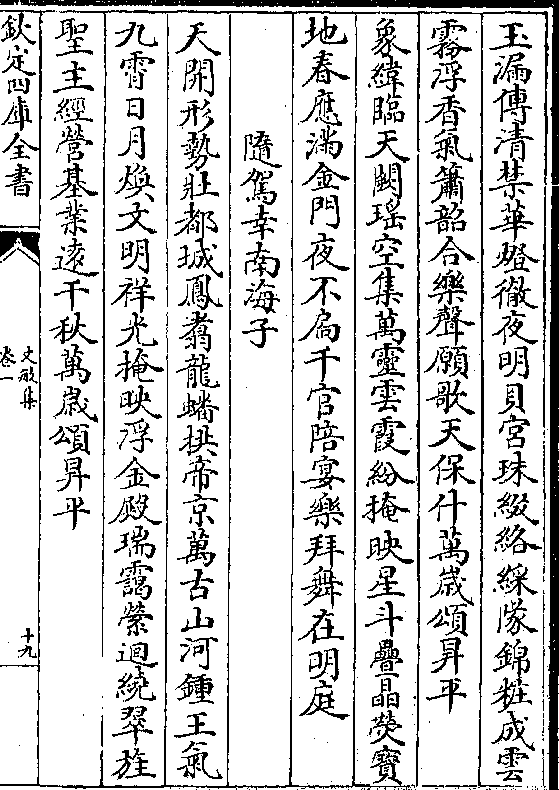 玉漏傳清禁華燈徹夜明貝宮珠綴絡綵隊錦粧成雲
霧浮香氣簫韶合樂聲願歌天保什萬歲頌昇平
象緯臨天闕瑤空集萬靈雲霞紛掩映星斗疊晶熒寶
地春應滿金門夜不扃千官陪宴樂拜舞在明庭
隨駕幸南海子
天開形勢壯都城鳳翥龍蟠拱帝京萬古山河鍾王氣
九霄日月煥文明祥光掩映浮金殿瑞靄縈迴繞翠旌
聖主經營基業遠千秋萬歲頌昇平
欽定四庫全書
文敏集
卷一
十九